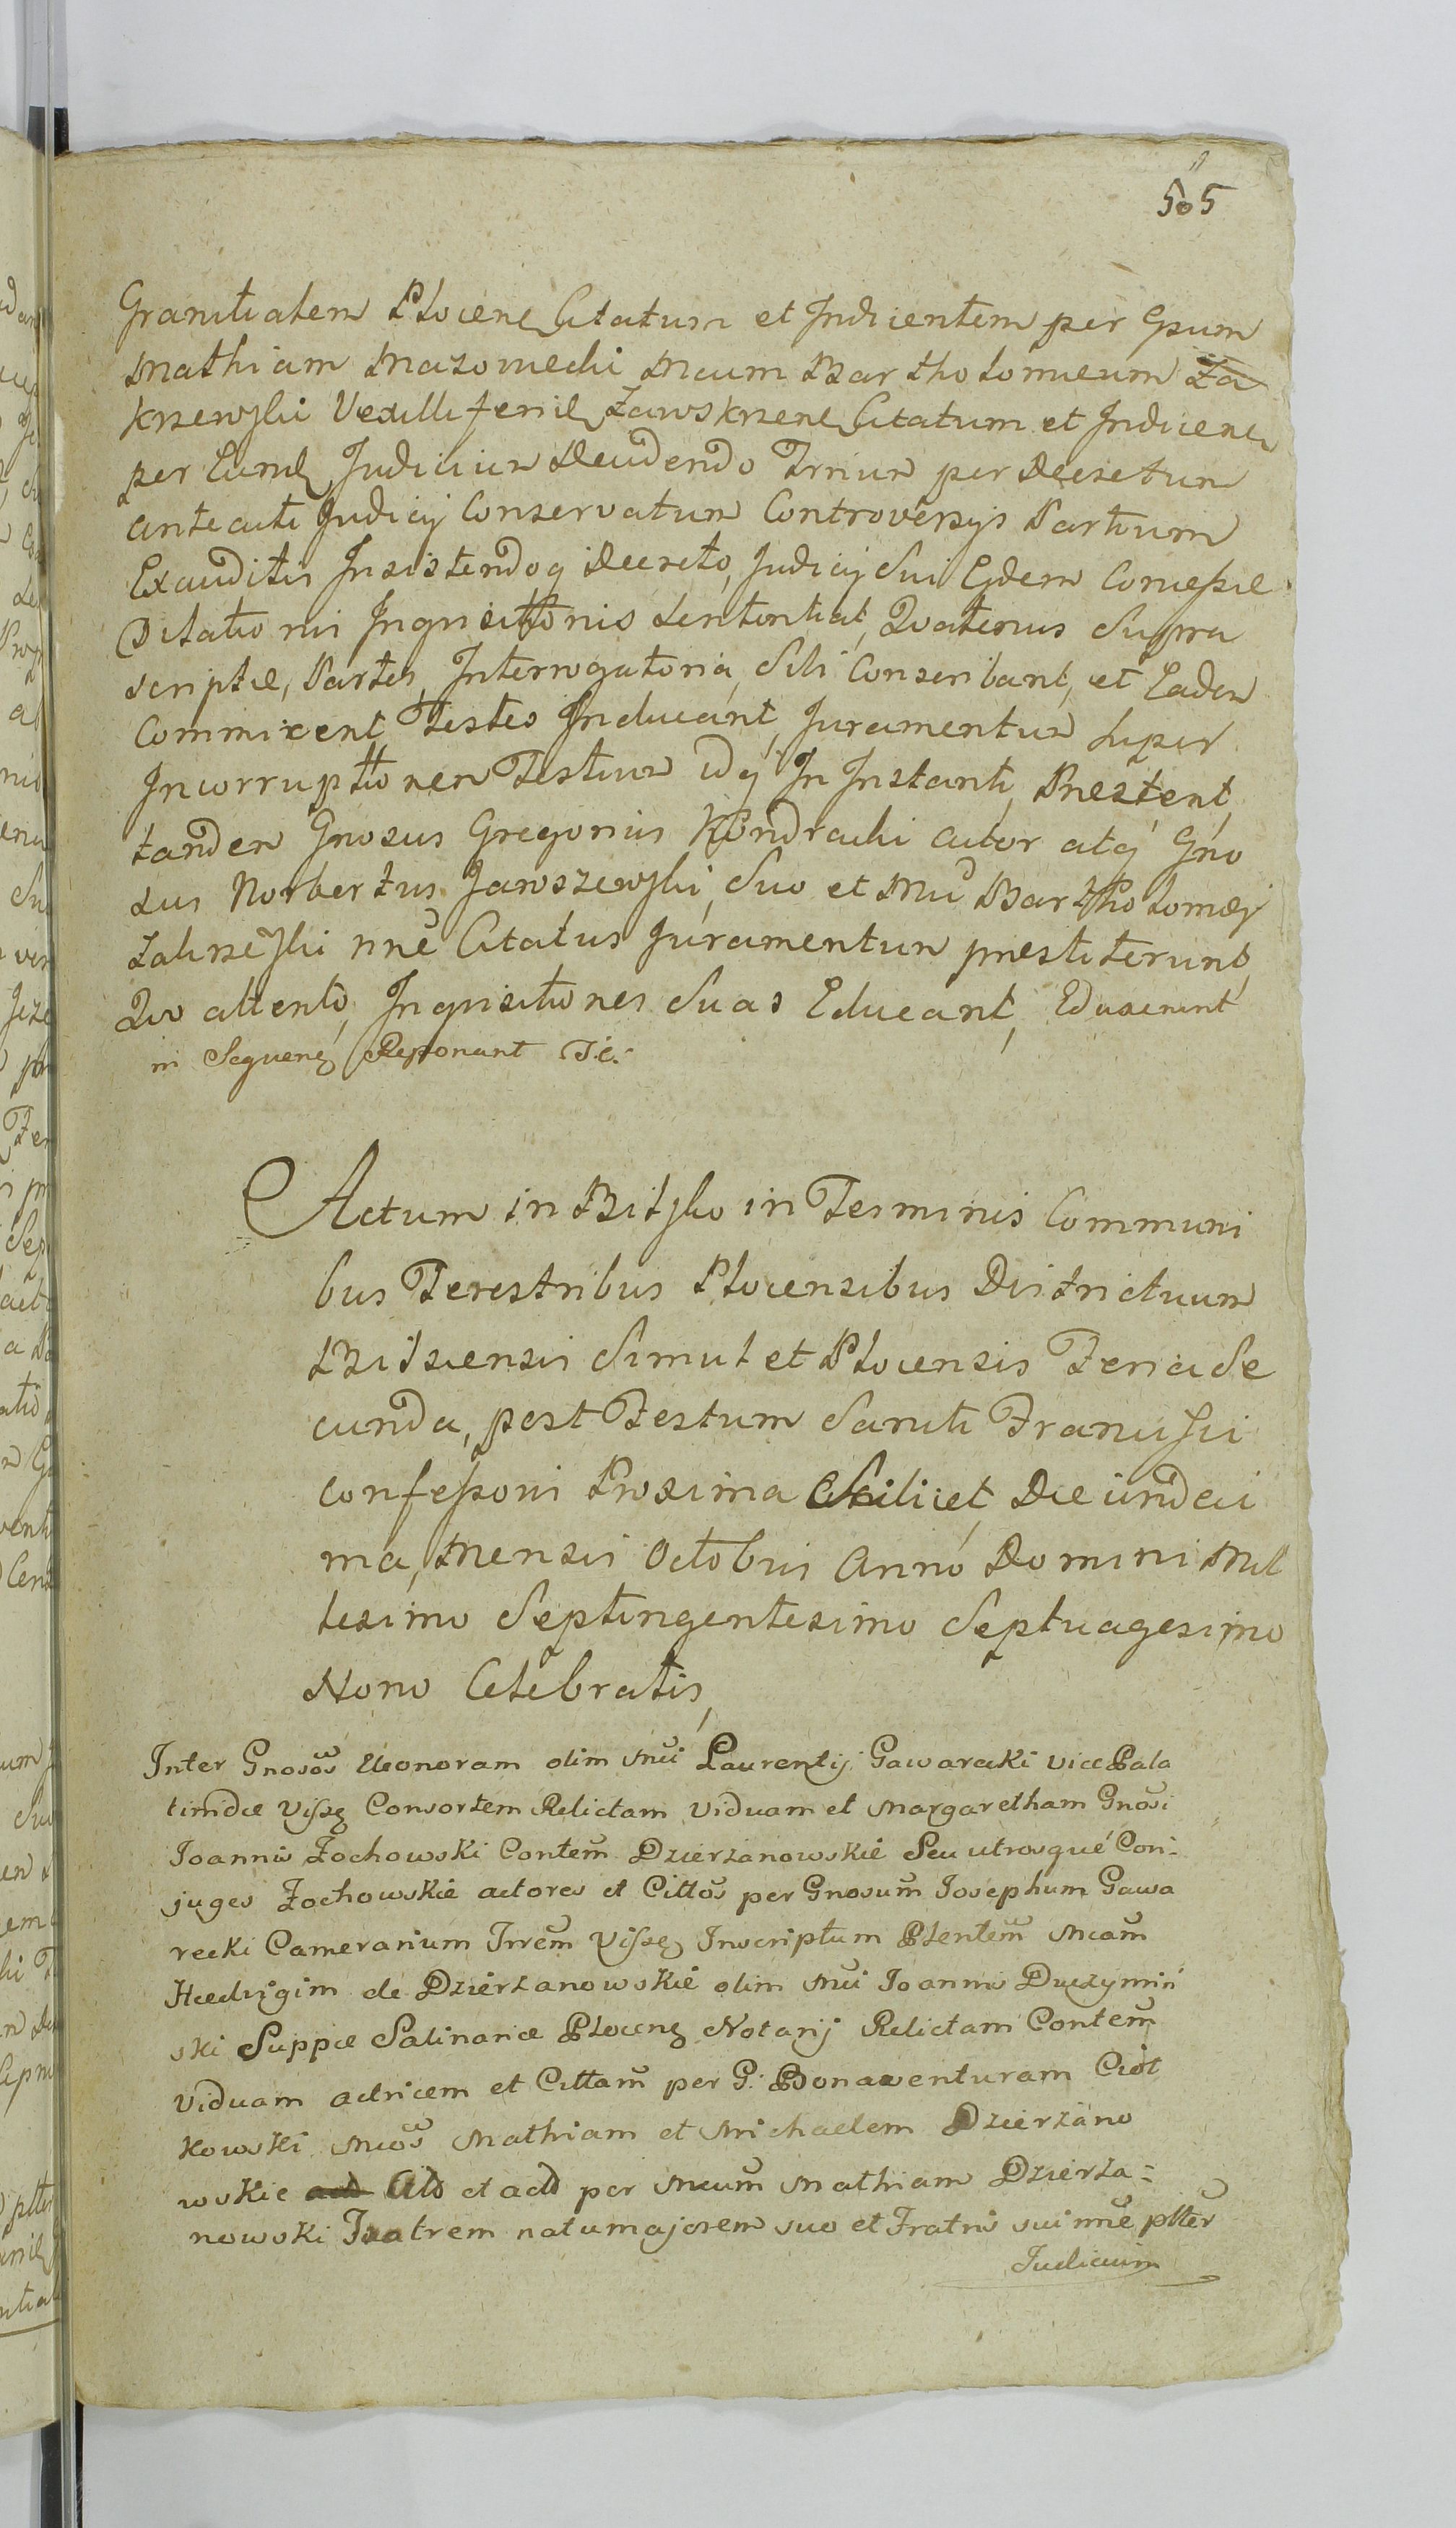 505
Granitialem Plocenę Citatum et Indicentem per Gsum
Mathiam Mazowiecki Mcum Bartholomeum Za
krzewski Vexilliferię Zawskrzenę Citatum et Indicene
per Eundę Judicium Deudendo Trnum per Decretum
anteacti Judicij Conservatum Controversijs Partium
Exauditis Insistendoq Decreto, Judicij Sui Ejdem Concessae
Ditationi Inquisittionis Sententiat, Quatenus Supra
scriptae, Partes, Interrogatoria, Sibi Conseribant, et Eadem
Commixent Testes Inducant, Juramentum Super
Incorrupttionem Testium idq In Instanti, Prestent,
tandem Gnosus Gregorius Kondracki Actor atq Gno
sus Norbertus Jaroszewski, Suo et Mci Bartholomaej
Zakrzeski nnē Citatus Juramentum prestiterunt,
Quo attento, Inquisitiones Suas Educant, Eduxerunt
in Sequenę Reponant T.c.
Actum in Bilsko in Terminis Communi
bus Terestribus Plocensibus Districtuum
Bilscensis Simul et Plocensis Feria Se
cunda, post Festum Sancti Francisci
confessoris Proxima Scilicet, Die undeci
ma, Mensis Octobris Anno Domini Mil
lesimo Septingentesimo Septuagesimo
Nono Celebratis,
Inter Gnosōs Eleonoram olim Mci Laurentij Gawarecki vice Pala
tinidae Vissę Consortem Relictam Viduam et Margaretham Gnosi
Joannis Zochowski Contem̄ Dzierzanowskie Seu utrosque Con-
juges Zochowskie actores et Cittōs per Gnosum̄ Josephum Gawa
recki Camerarium Trrem̄ Vissę Inscriptum Plentem̄ Mcam̄
Hedvigim de Dzierzanowskie olim Mci Joannis Duczymiń
ski Suppae Salinariae Plocenę Notarij Relictam Contem̄
Viduam actricem et Cittam̄ per G: Bonaventuram Ciot
kowski Mcōs Mathiam et Michaelem Dzierzano
wskie Citō et actō per Mcum̄ Mathiam Dzierza-
nowski Fratrem natumajorem suo et Fratris sui nnē ptter̄
Judicium